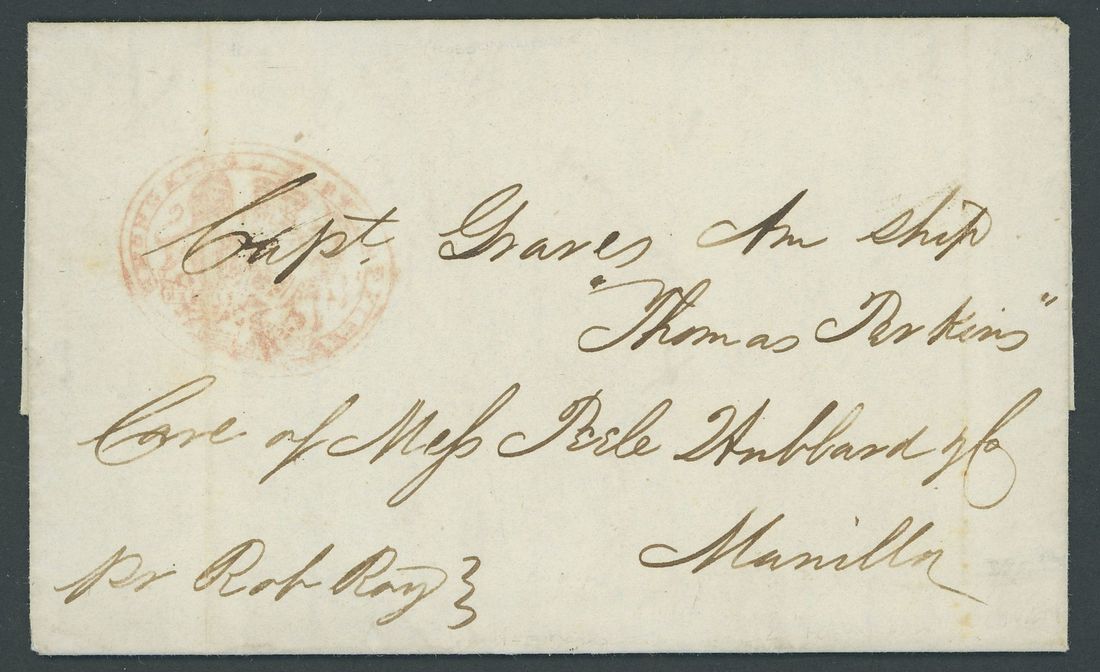 Capt. Graves Am ship
"Thomas Perkins"
Care of Mess Peele Hubbard & Co
Manilla
pr Rob Roy }